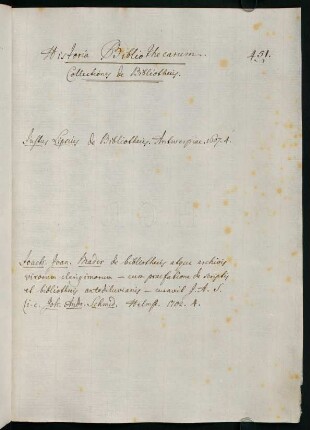 Historia Bibliothecarum.
451.
Collectiones de Bibliothecis.
Justus Lipsius de Bibliothecis. Antwerpiae. 1607. 4.
Joach. Joan. Mader de bibliothecis atque archivis
virorum clarissimorum – cum praefatione de scriptis
et bibliothecis antediluvianis – curavit J. A. S.
(i. e. Joh. Andr. Schmid. Helmst. 1702. 4.